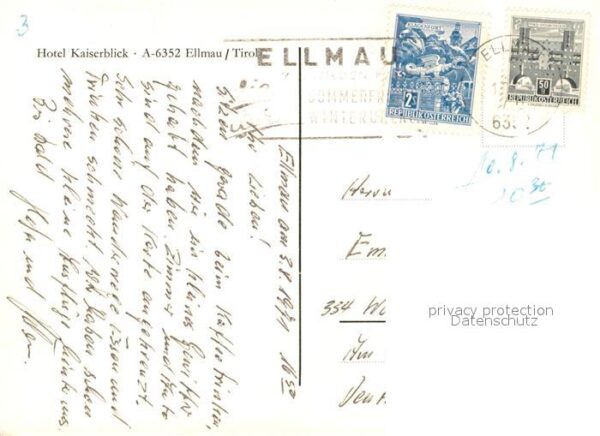 3
Hotel Kaiserblick · A-6352 Ellmau / Tirol
ELLMAU
SOMMERFR
WINTERURLAUB
KLAGENFURT
2S
REPUBLIK ÖSTERREICH
50
REPUBLIK ÖSTERREICH
ELLM
635
10.8.71
20 30
Ellmau am 3.8.1971 16 50
Ihr Lieben!
Sitzen gerade beim Kaffee trinken,
nachdem wir ein kleines Gewitter
gehabt haben. Zimmer und Auto
sind auf der Karte angekreuzt.
Sehr schöne Wanderwege. Essen und
Trinken schmeckt. Wir haben schon
mehrere kleine Ausflüge hinter uns.
Bis bald
und
Herrn
Em
334 Wo
Am
Deut
privacy protection
Datenschutz